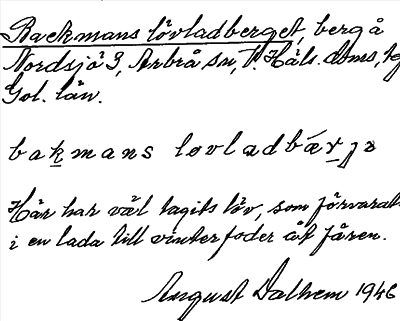 Backmans lövladberget, berg å
Nordsjö 3, Arbrå sn, V. Häls. doms,
Gbl. län.
bakmans lovladbärjə
Här har väl tagits löv, som förvarats
i en lada till vinterfoder åt fåren.
August Dalhem 1946